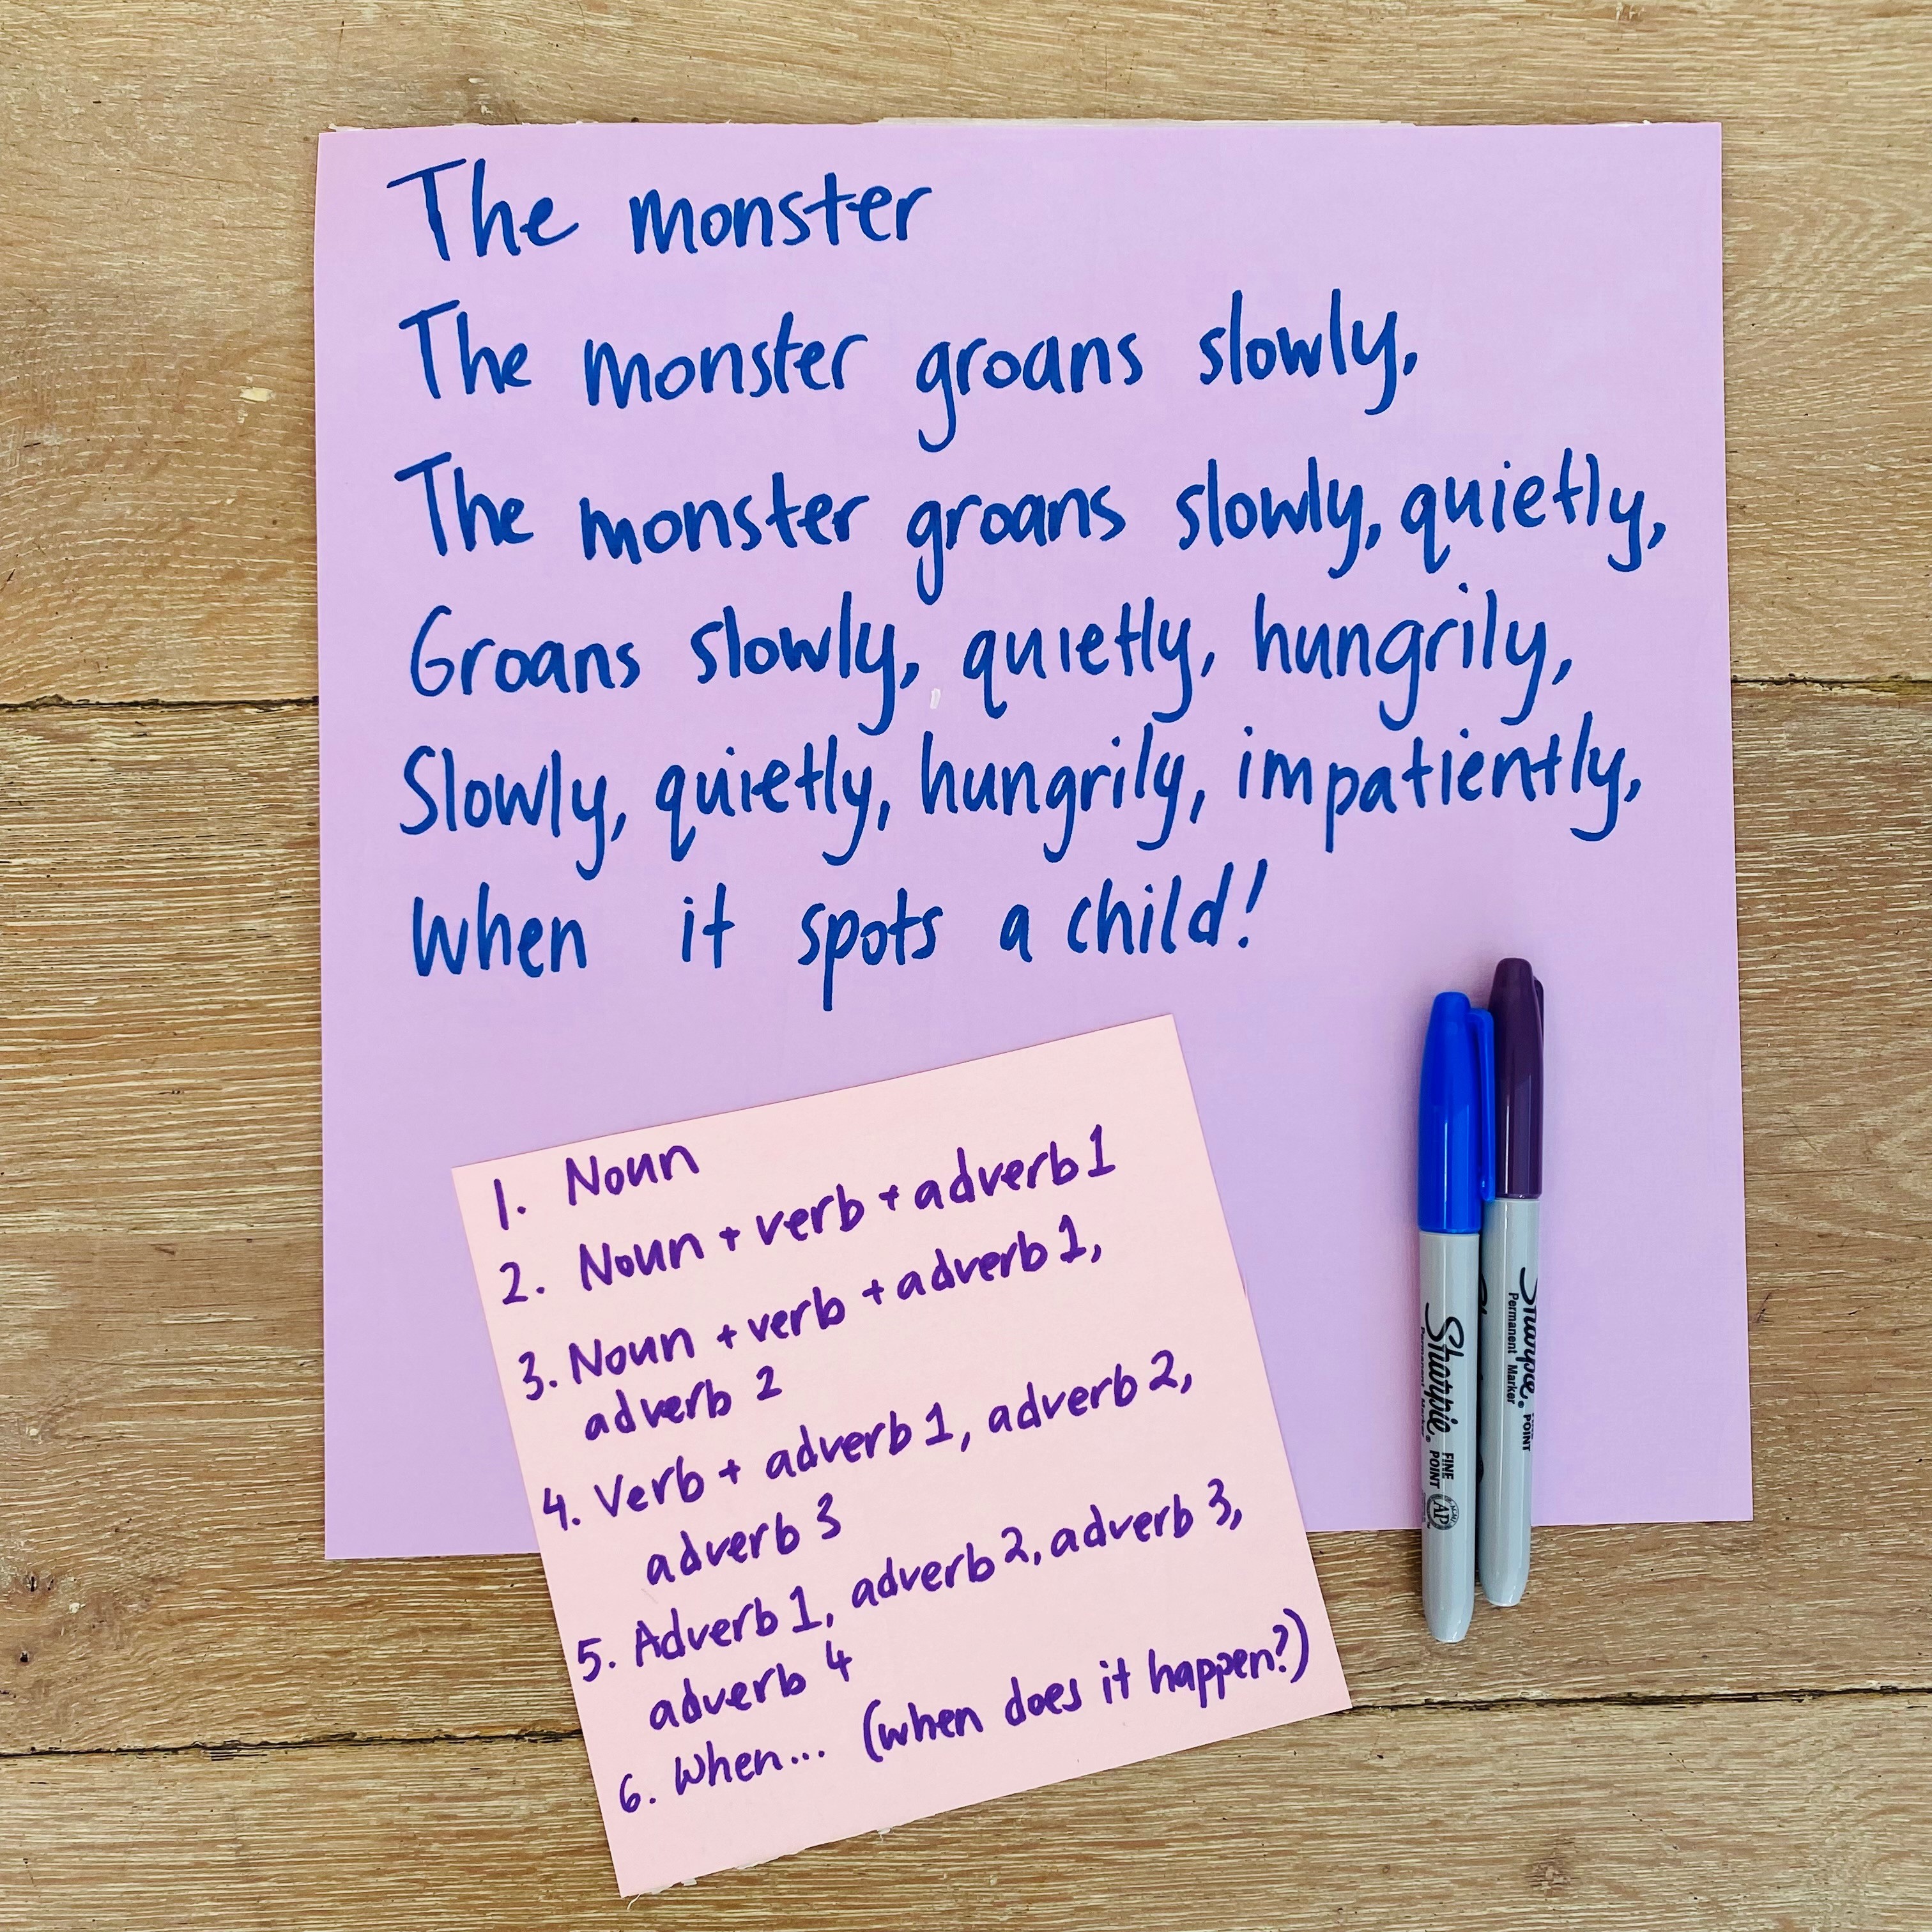 The monster
The monster groans slowly,
The monster groans slowly, quietly,
Groans slowly, quietly, hungrily,
Slowly, quietly, hungrily, impatiently,
When it spots a child!
1. Noun
2. Noun + verb + adverb 1
3. Noun + verb + adverb 1,
adverb 2
4. Verb + adverb 1, adverb 2,
adverb 3
5. Adverb 1, adverb 2, adverb 3,
adverb 4
6. When... (when does it happen?)
Sharpie.
Permanent Marker
FINE
POINT
AP
Sharpie.
Permanent Marker
POINT